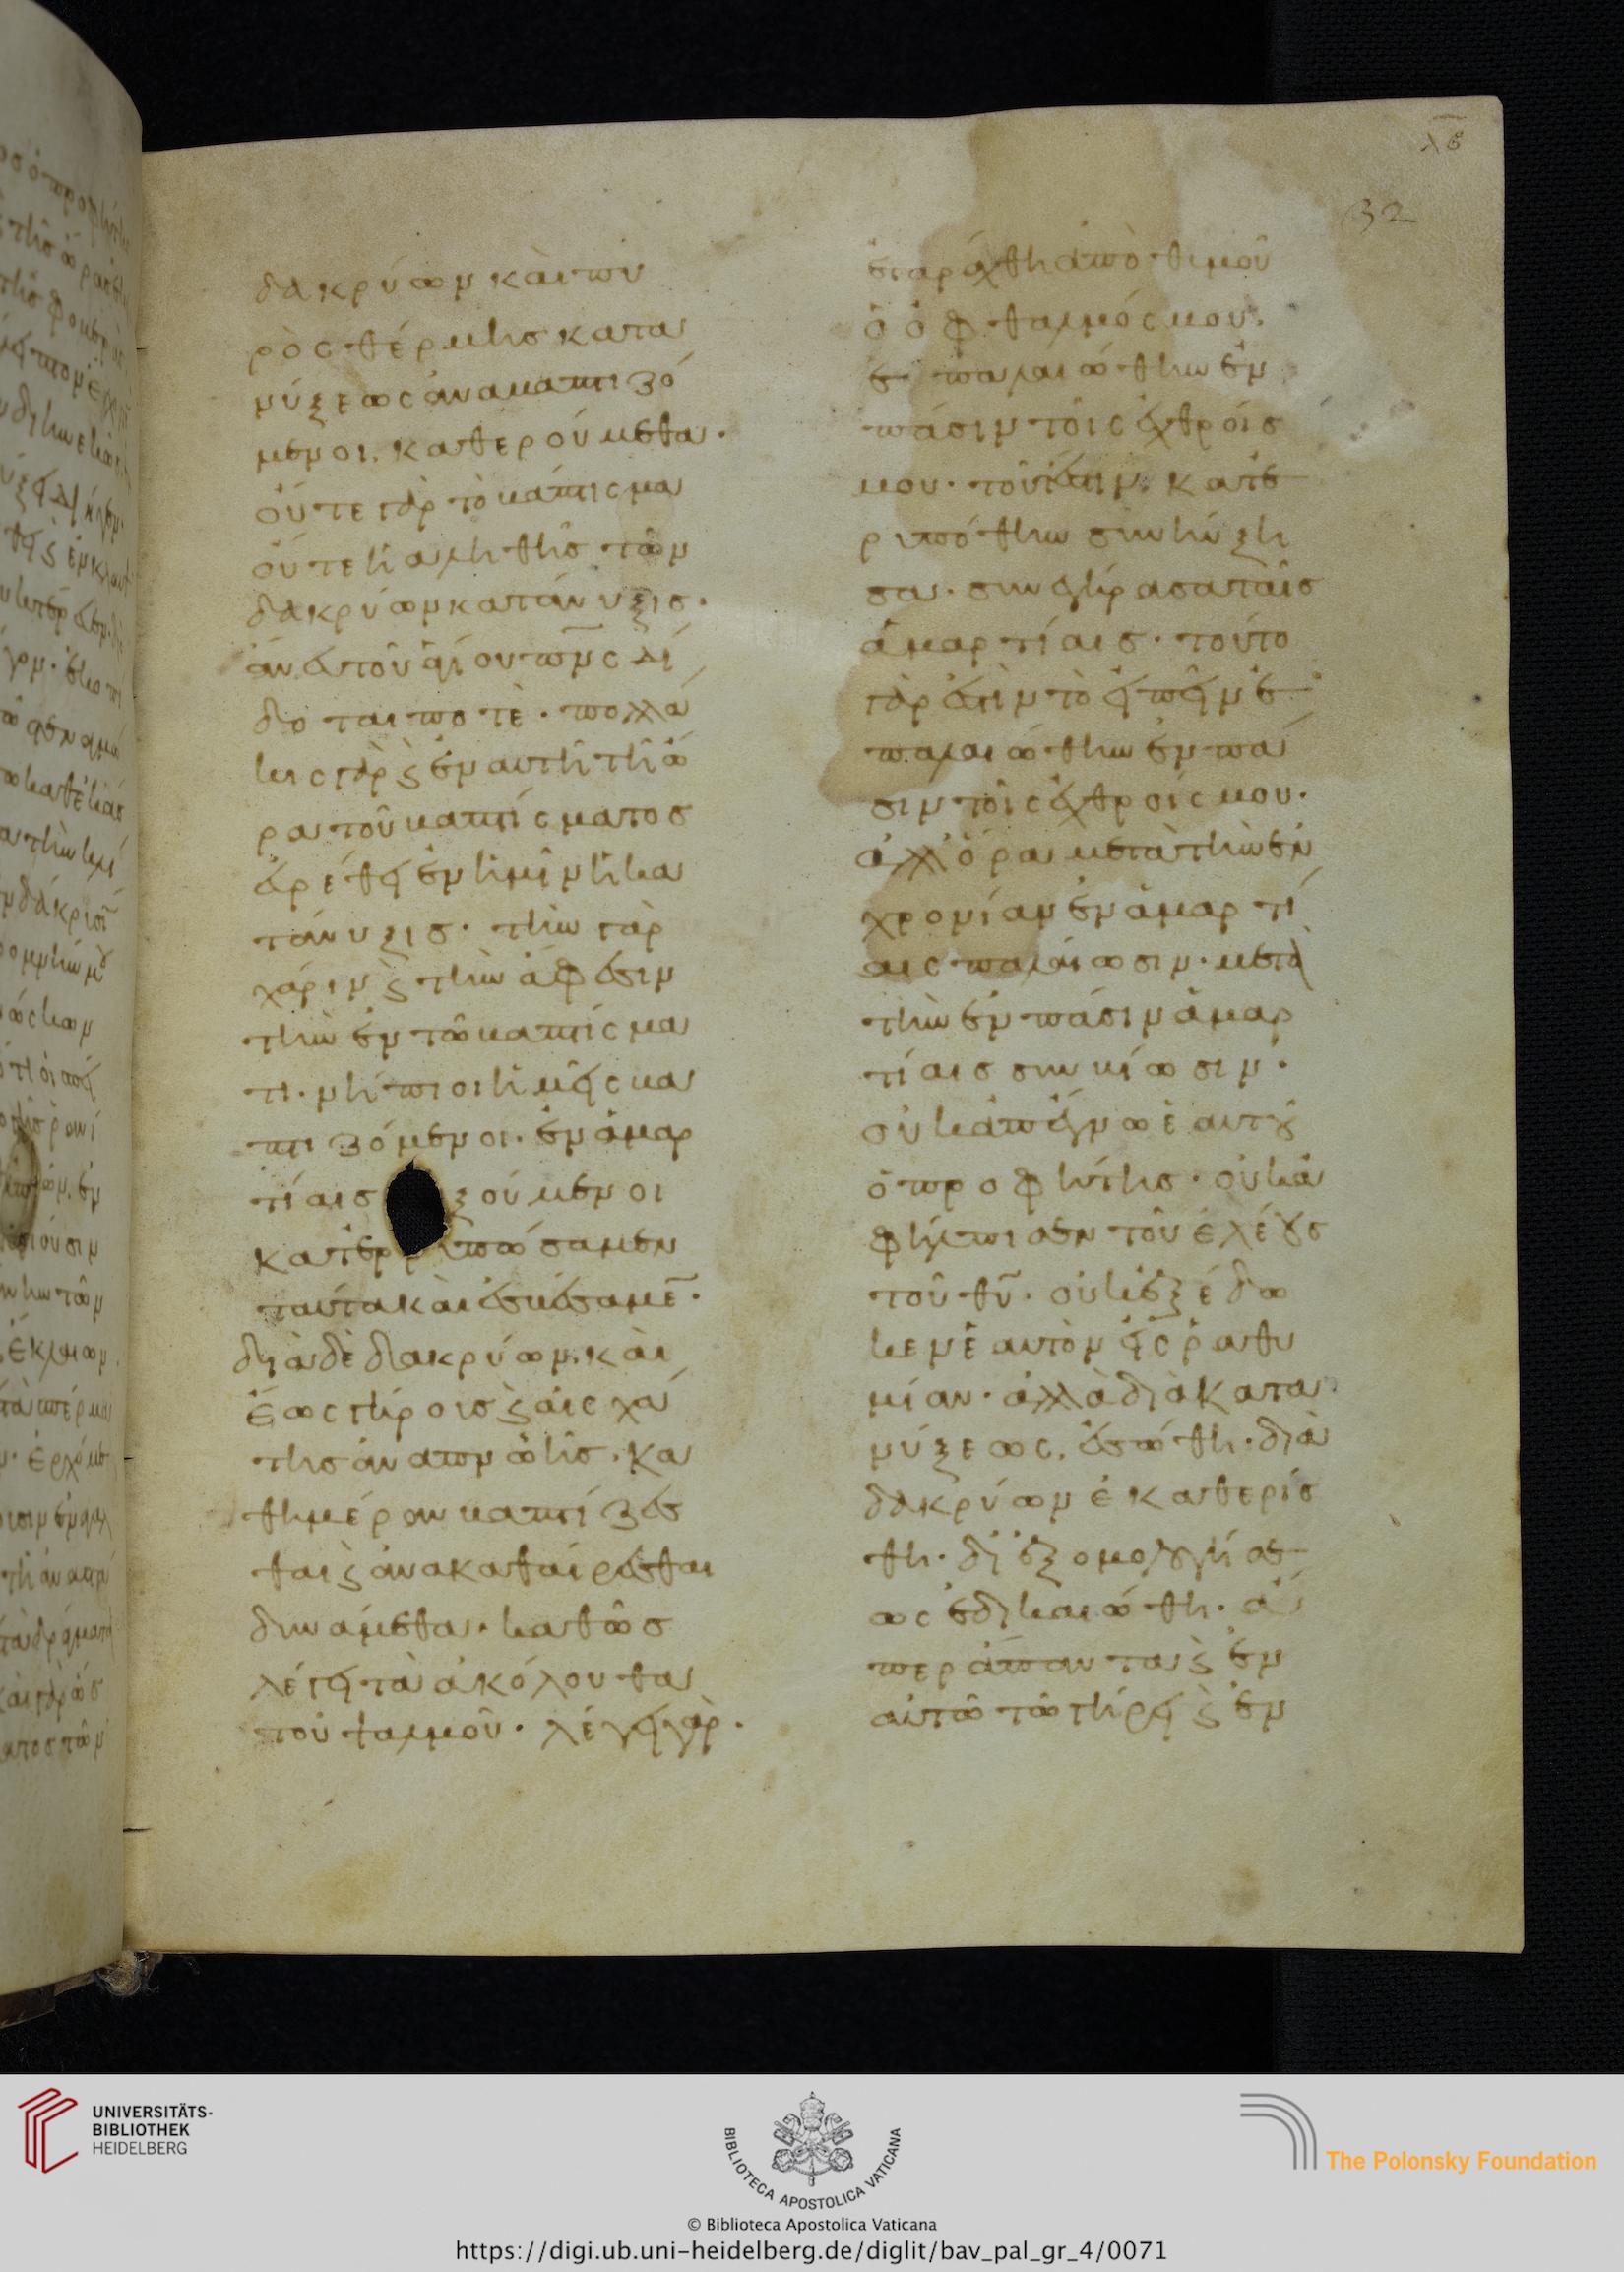 δακρύων καὶ πυ
ρὸς θέρμης κατα
νύξεως ἀναβαπτιζό
μενοι. καθερούμεθα.
οὔτε γὰρ τὸ βάπτισμα
οὔτε ἡ ἀληθὴς τῶν
δακρύων κατάνυξις.
ἄνευ τοῦ ἁγίου πν̅ς δί
δοται ποτὲ. πολλά
κις γὰρ ϗ ἐν αυτῆ τῆ ὥ
ρα τοῦ βαπτίσματος
εὑρέθει ἐν ἡμῖν ἡ κα
τάνυξις. τὴν γὰρ
χάριν ϗ τὴν ἄφεσιν
τὴν ἐν τῶ βαπτίσμα
τι. νήπιοι ἡμεῖς βα
πτιζόμενοι. ἐν ἁμαρ
τίαις ξούμενοι
κατερρυπώσαμεν
ταύτα καὶ ἐσβέσαμε̅.
διὰ δὲ διακρύων. καὶ
ἕως γήροις ϗ αἰσχά
της ἀναπνοῆς. κα
θημέραν βαπτίζεσ
θαι ϗ ἀνακαθαίρεσθαι
δυνάμεθα. καθὼς
λέγει τὰ ἀκόλουθα
τοῦ ψαλμοῦ. λέγει γὰρ.
λβ
32
ἐταράχθη ἀπὸ θυμοῦ
ὁ ὀφθαλμός μου.
ἐπαλαιώθην ἐν
πάσιν τοῖς ἐχθροίς
μου. τοῦτέστιν. κατε
ρυπώθην συνηύξη
σα. συνεγήρασα ταῖς
ἁμαρτίαις. τοῦτο
γὰρ ἐστὶν τὸ εἰπεῖν ἐ
παλαιώθην ἐν πά
σιν τοῖς ἐχθροίς μου.
ἀλλ' ὅρα μετὰ τὴν ἐν
χρονίαν ἐν ἁμαρτί
αις παλαίωσιν. μετὰ
τὴν ἐν πάσιν ἁμαρ
τίαις συνβίωσιν.
οὐκ ἀπέγνω ἑαυτοῦ
ὁ προφήτης. οὐκ ἀ
φήλπισεν τοῦ ἐλέους
τοῦ θυ̅. οὐκ ἐξέδω
κεν ἑαυτὸν εἰς ῥαθυ
μίαν. ἀλλὰ διὰ κατα
νύξεως. ἐσώθη. διὰ
δακρύων ἐκαθερίσ
θη. δι' ἐξομολογήσε
ως ἐδικαιώθη. ἅ
περ ἅπαντα ϗ ἐν
αὐτῶ τῶ γήρει ϗ ἐν
UNIVERSITÄTS-
BIBLIOTHEK
HEIDELBERG
BIBLIOTECA APOSTOLICA VATICANA
The Polonsky Foundation
© Biblioteca Apostolica Vaticana
https://digi.ub.uni-heidelberg.de/diglit/bav_pal_gr_4/0071